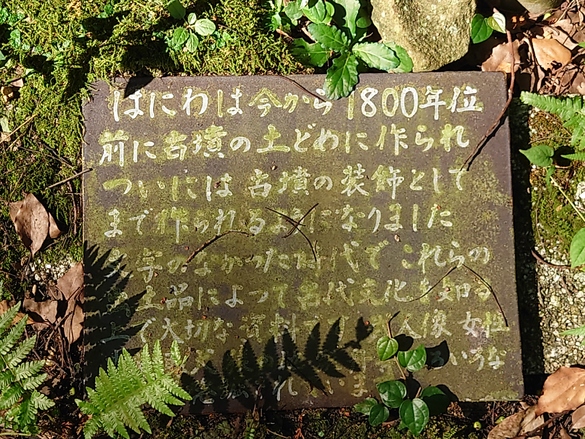 はにわは今から1800年位
前に古墳の土どめに作られ
ついには古墳の装飾として
まで作られるようになりました
字のなかった時代でこれらの
土品によって古代文化を知る
で大切な資料で 人像 女性
いろな
れています